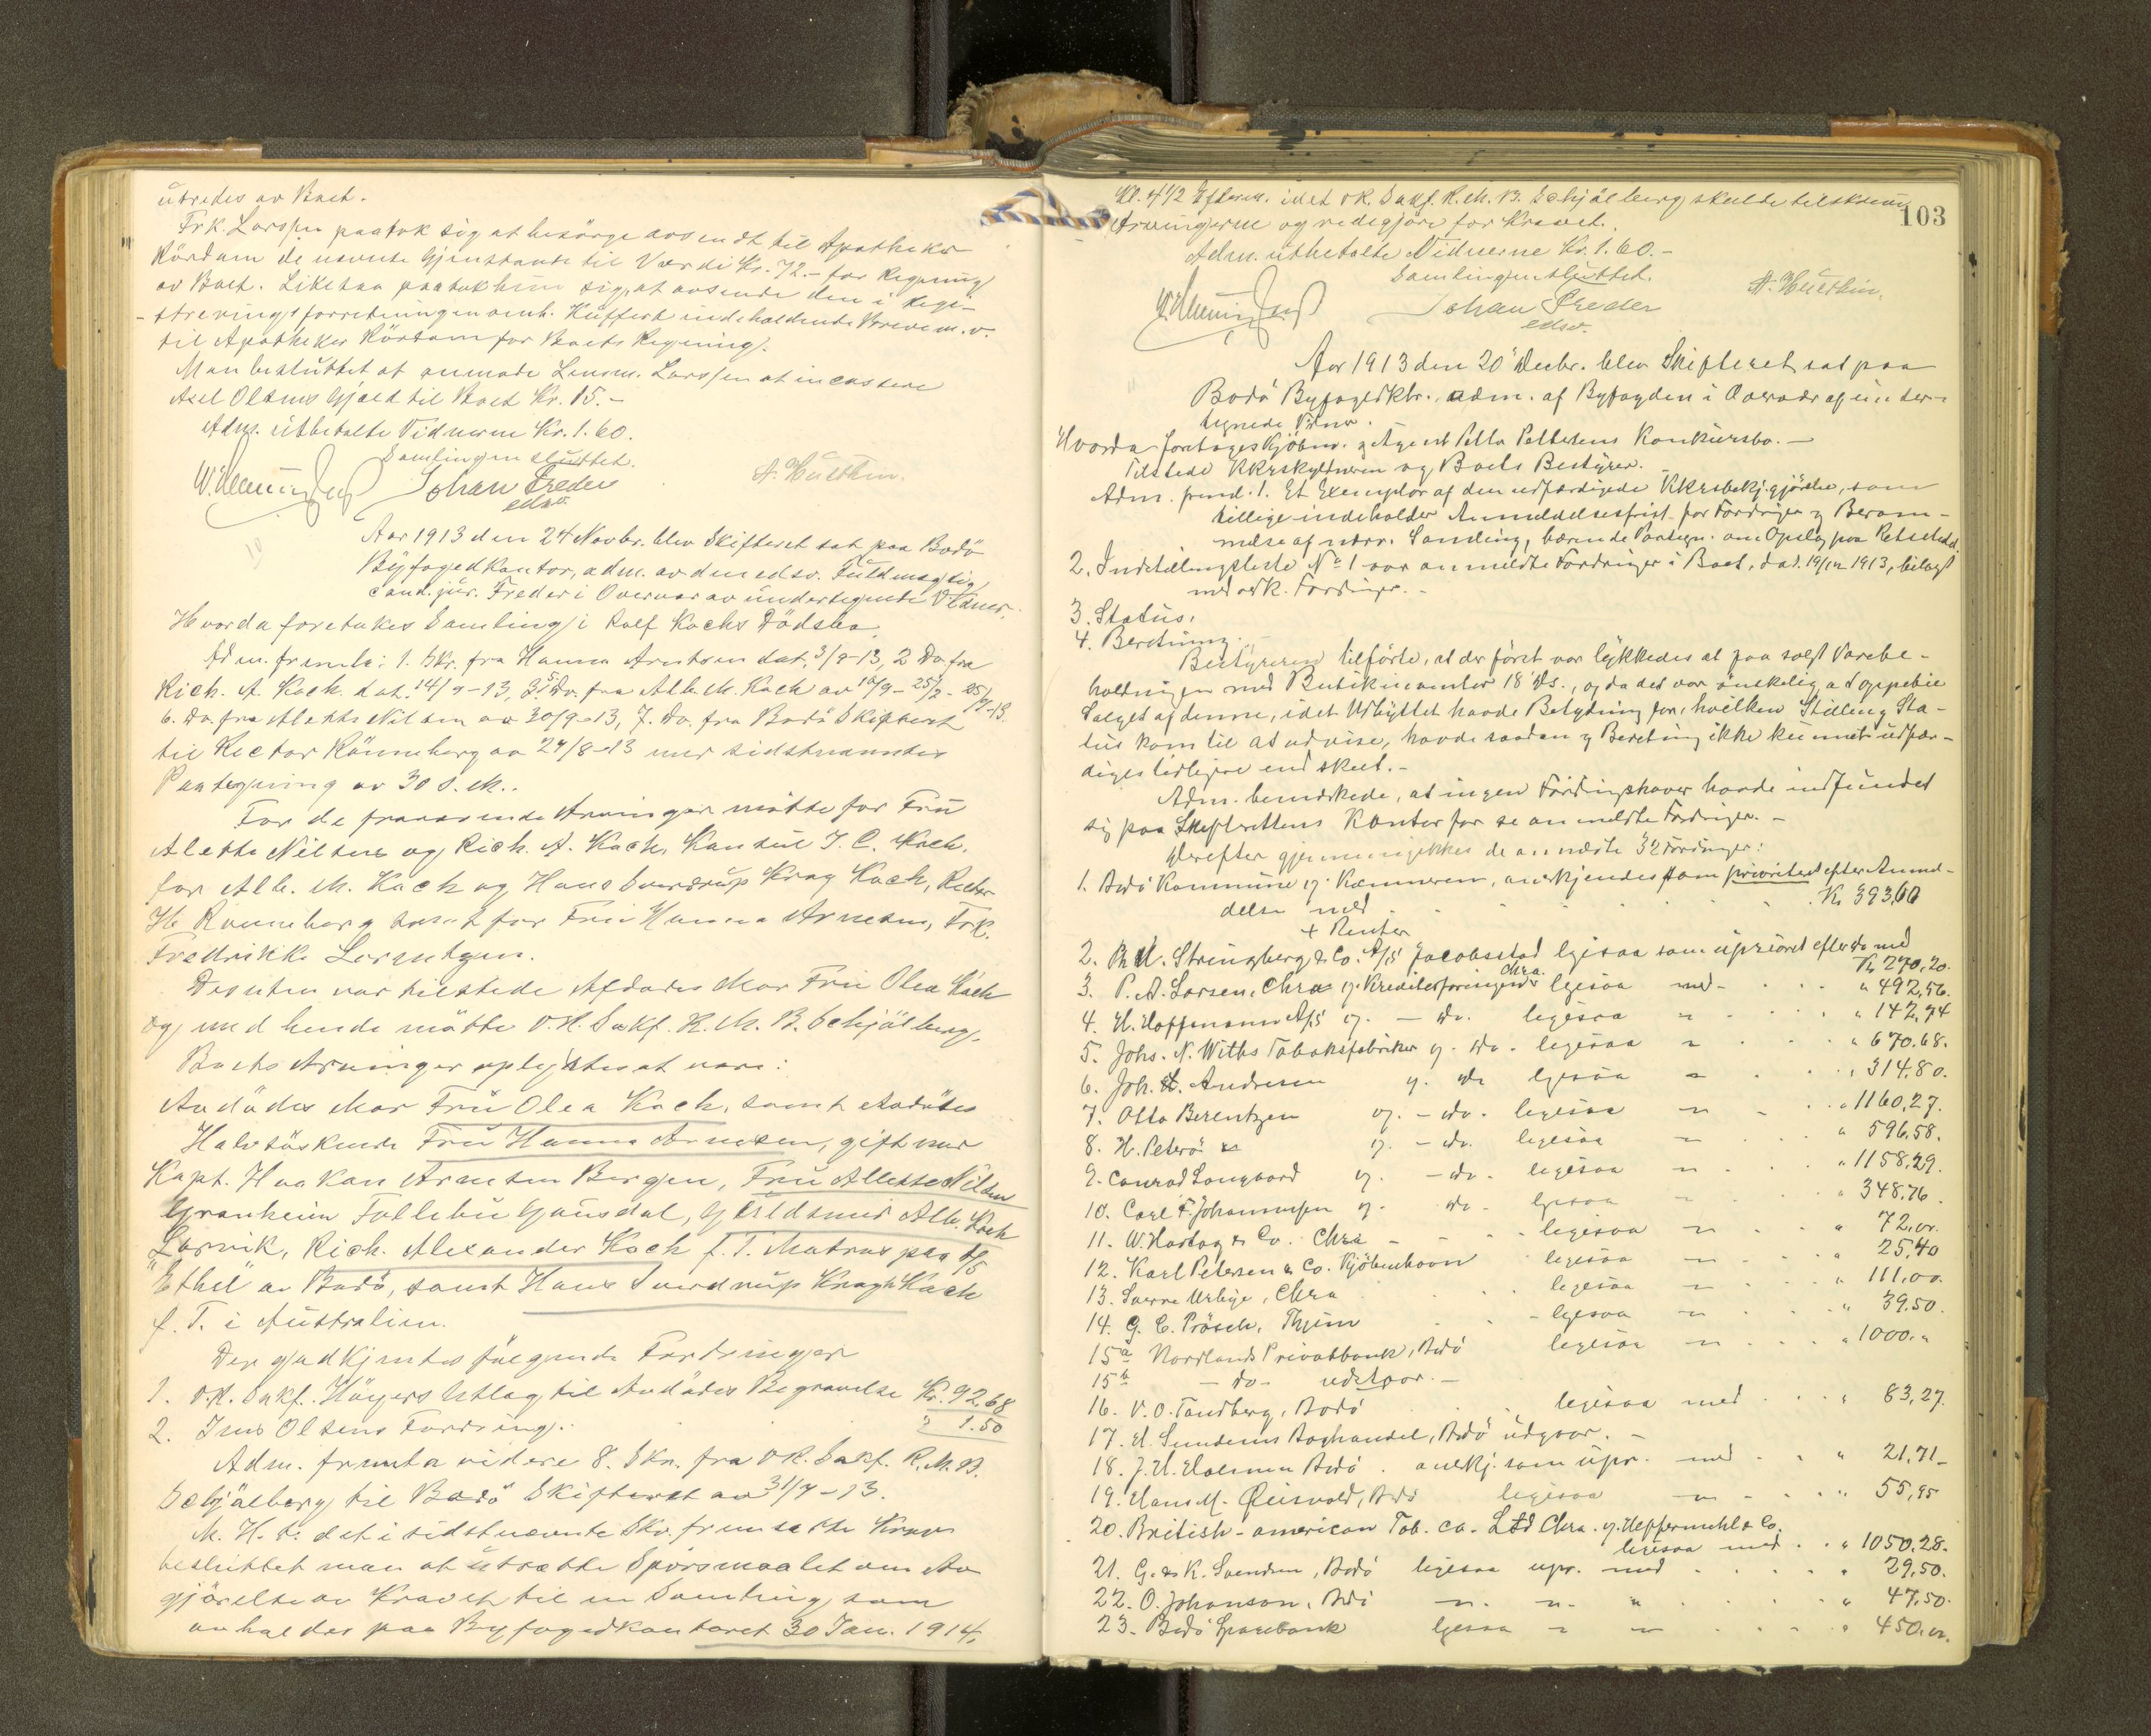 utredes av Boet.
Frk. Larssen paatok sig at besörge avsendt til Apotheker
Rördam de nævnte Gjenstande til Værdi Kr. 72.- for Regning
av Boet. Likesaa paatok hun sig, at avsende den i Regi-
streringsforretningen omh. Kuffert indeholdende Breve m.v.
til Apotheker Rördam for Boets Regning.
Man besluttet at anmode Lensm. Larssen at incassere
Axel Olsens Gjæld til Boet Kr. 15.-
Adm. utbetalte Vidnerne Kr. 1.60.
Samlingen sluttet.
Johan Freder
edsv.
Aar 1913 den 24 Novbr. blev Skifteret sat paa Bodö
Byfogedkontor, adm. av den edsv. Fuldmægtig
cand. jur. Freder i Overvær av undertegnede Vidner.
Hvorda foretakes Samling i Rolf Kochs Dödsbo.
Adm. fremla: 1. Skr. fra Hanna Arntsen dat. 3/9-13, 2 Do fra
Rich. A. Koch dat. 14/9-13, 3-5 Do. fra Alb. M. Koch av
6. Do. fra Alette Nilsen av 30/9-13, 7. Do. fra Bodö Skifteret
til Rector Rönneberg av 27/8-13 med sidstnævntes
Paategning av 30 s. M..
For de fraværende Arvinger mötte for Fru
Alette Nilsens og Rich. A. Koch, Konsul J. C. Koch,
for Alb. M. Koch og Hans Sverdrup Krag Koch, Rector
H. Rönneberg samt for Fru Hanna Arnesen, Frk.
Fredrikke Lorentzen.
Desuten var tilstede Afdödes Mor Fru Olea Koch
og med hende mötte O.R. Sakf. R. M. B. Schjölberg.
Boets Arvinger oplystes at være:
Avdödes Mor Fru Olea Koch, samt Avdödes
Halvsöskende Fru Hanna Arnesen, gift med
Kapt. Haakon Arnesen Bergen, Fru Alette Nilsen
Granheim Follebu Gausdal, Guldsmed Alb. Koch
Larvik, Rich. Alexander Koch f. T. Matros paa D/S
"Ethel" av Bodö, samt Hans Sverdrup Kragh Koch
f. T. i Australien.
Der godkjentes fölgende Fordringer
1. O.R. Sakf. Höyers Utlæg til Avdödes Begravelse Kr. 92.68
2. Jens Olsens Fordring. " 1.50
Adm. fremla videre 8. Skr. fra O.R. Sakf. R. M. B.
Schjölberg til Bodö Skifteret av 31/7-13.
M. H. t. det i sidstnævnte Skr. fremsatte Krav
besluttet man at utsætte Spörsmaalet om Av
gjörelse av Kravet til en Samling, som
avholdes paa Byfogedkontoret 30 Jan. 1914,
103
Kl. 4 1/2 Efterm. idet O.R. Sakf. R. M. B. Schjölberg skulde tilskrive
Arvingerne og redegjöre for Kravet.
Adm. utbetalte Vidnerne Kr. 1.60.-
Samlingen sluttet.
Johan Freder
edsv.
Aar 1913 den 20 Decbr. blev Skifteret sat paa
Bodö Byfogedktr., adm. af Byfogden i Overvær af under-
tegnede Vidner.
Hvorda foretages Kjöbm. & Agent Petter Pettersens Konkursbo.-
Tilstede KKrskyldneren og Boets Bestyrer.-
Adm. freml. 1. Et Exemplar af den udfærdigede KKrsbekj.gjörelse, som
tillige indeholder Anmeldelsesfrist for Fordringer & Beram-
melse af nærv. Samling, bærende Paategn. om Opslag paa Retsstedet.
2. Indstillingsliste No 1 over anmeldte Fordringer i Boet, dat. 19/12 1913, bilagt
med ark. Fordringer.-
3. Status.
4. Beretning.-
Bestyreren tilförte, at det först var lykkedes at faa solgt Varebe-
holdningen med Butikinventar 18 ds., og da det var önskelig, at oppebie
Salget af denne, idet Udbyttet havde Betydning for, hvilken Stilling Sta-
tus kom til at udvise, havde saadan & Beretning ikke kunnet udfær-
diges tidligere end skeet.-
Adm. bemærkede, at ingen Fordringshaver havde indfundet
sig paa Skifterettens Kontor for at se anmeldte Fordringer.-
Derefter gjennemgikkes de anmeldte 32 Fordringer:
1. Bodö Kommune v. Kæmneren, anerkjendes som prioriteret efter Anmel-
delse med Kr 393,60
+ Renter
2. Stringberg & Co. A/S Jacobsstad ligesaa som uprioret efter do med
Kr 270,20.
3. P. A. Larsen, Chra v. Kreditorforeningen Chra. ligesaa med " 492,56.
4. H. Hoffmann A/S v. - do. ligesaa " " 142,74
5. Johs. N. Withs Tobaksfabriker v. do. ligesaa " " 670.68.
6. Joh. H. Andresen v. do ligesaa " " 314.80.
7. Otto Berentzen v. - do. ligesaa " " 1160,27.
8. H. Peterö v. - do. ligesaa " " 596,58.
9. Conrad Langaard v. - do. ligesaa " " 1158,29.
10. Carl F. Johannessen v. do - ligesaa " " 348.76.
11. W. Hartog & Co. Chra - ligesaa " " 72.00.
12. Karl Petersen & Co. Kjöbenhavn ligesaa " " 25,40
13. Sverre Urbye, Chra ligesaa " " 111,00.
14. G. C. Prösch, Thjem - ligesaa " " 39.50.
15a Nordlands Privatbank, Bodö ligesaa " " 1000.-
15b - do - udstaar.-
16. V. O. Tandberg, Bodö ligesaa med " 83,27.
17. E. Sundems Boghandel, Bodö udgaar.-
18. J. H. Holmen Bodö. anerkj. som upr. med " 21,71-
19. Hans M. Öiesvold, Bodö ligesaa " " 55,95
20. British-american Tob. co. Ltd Chra. v. Heffermehl & Co.
ligesaa med " 1050.28.
21. G. & K. Svendsen, Bodö ligesaa upr. med " 29,50.
22. O. Johanson, Bodö " " " " 47,50.
23. Bodö Sparebank ligesaa " " " 450.00.